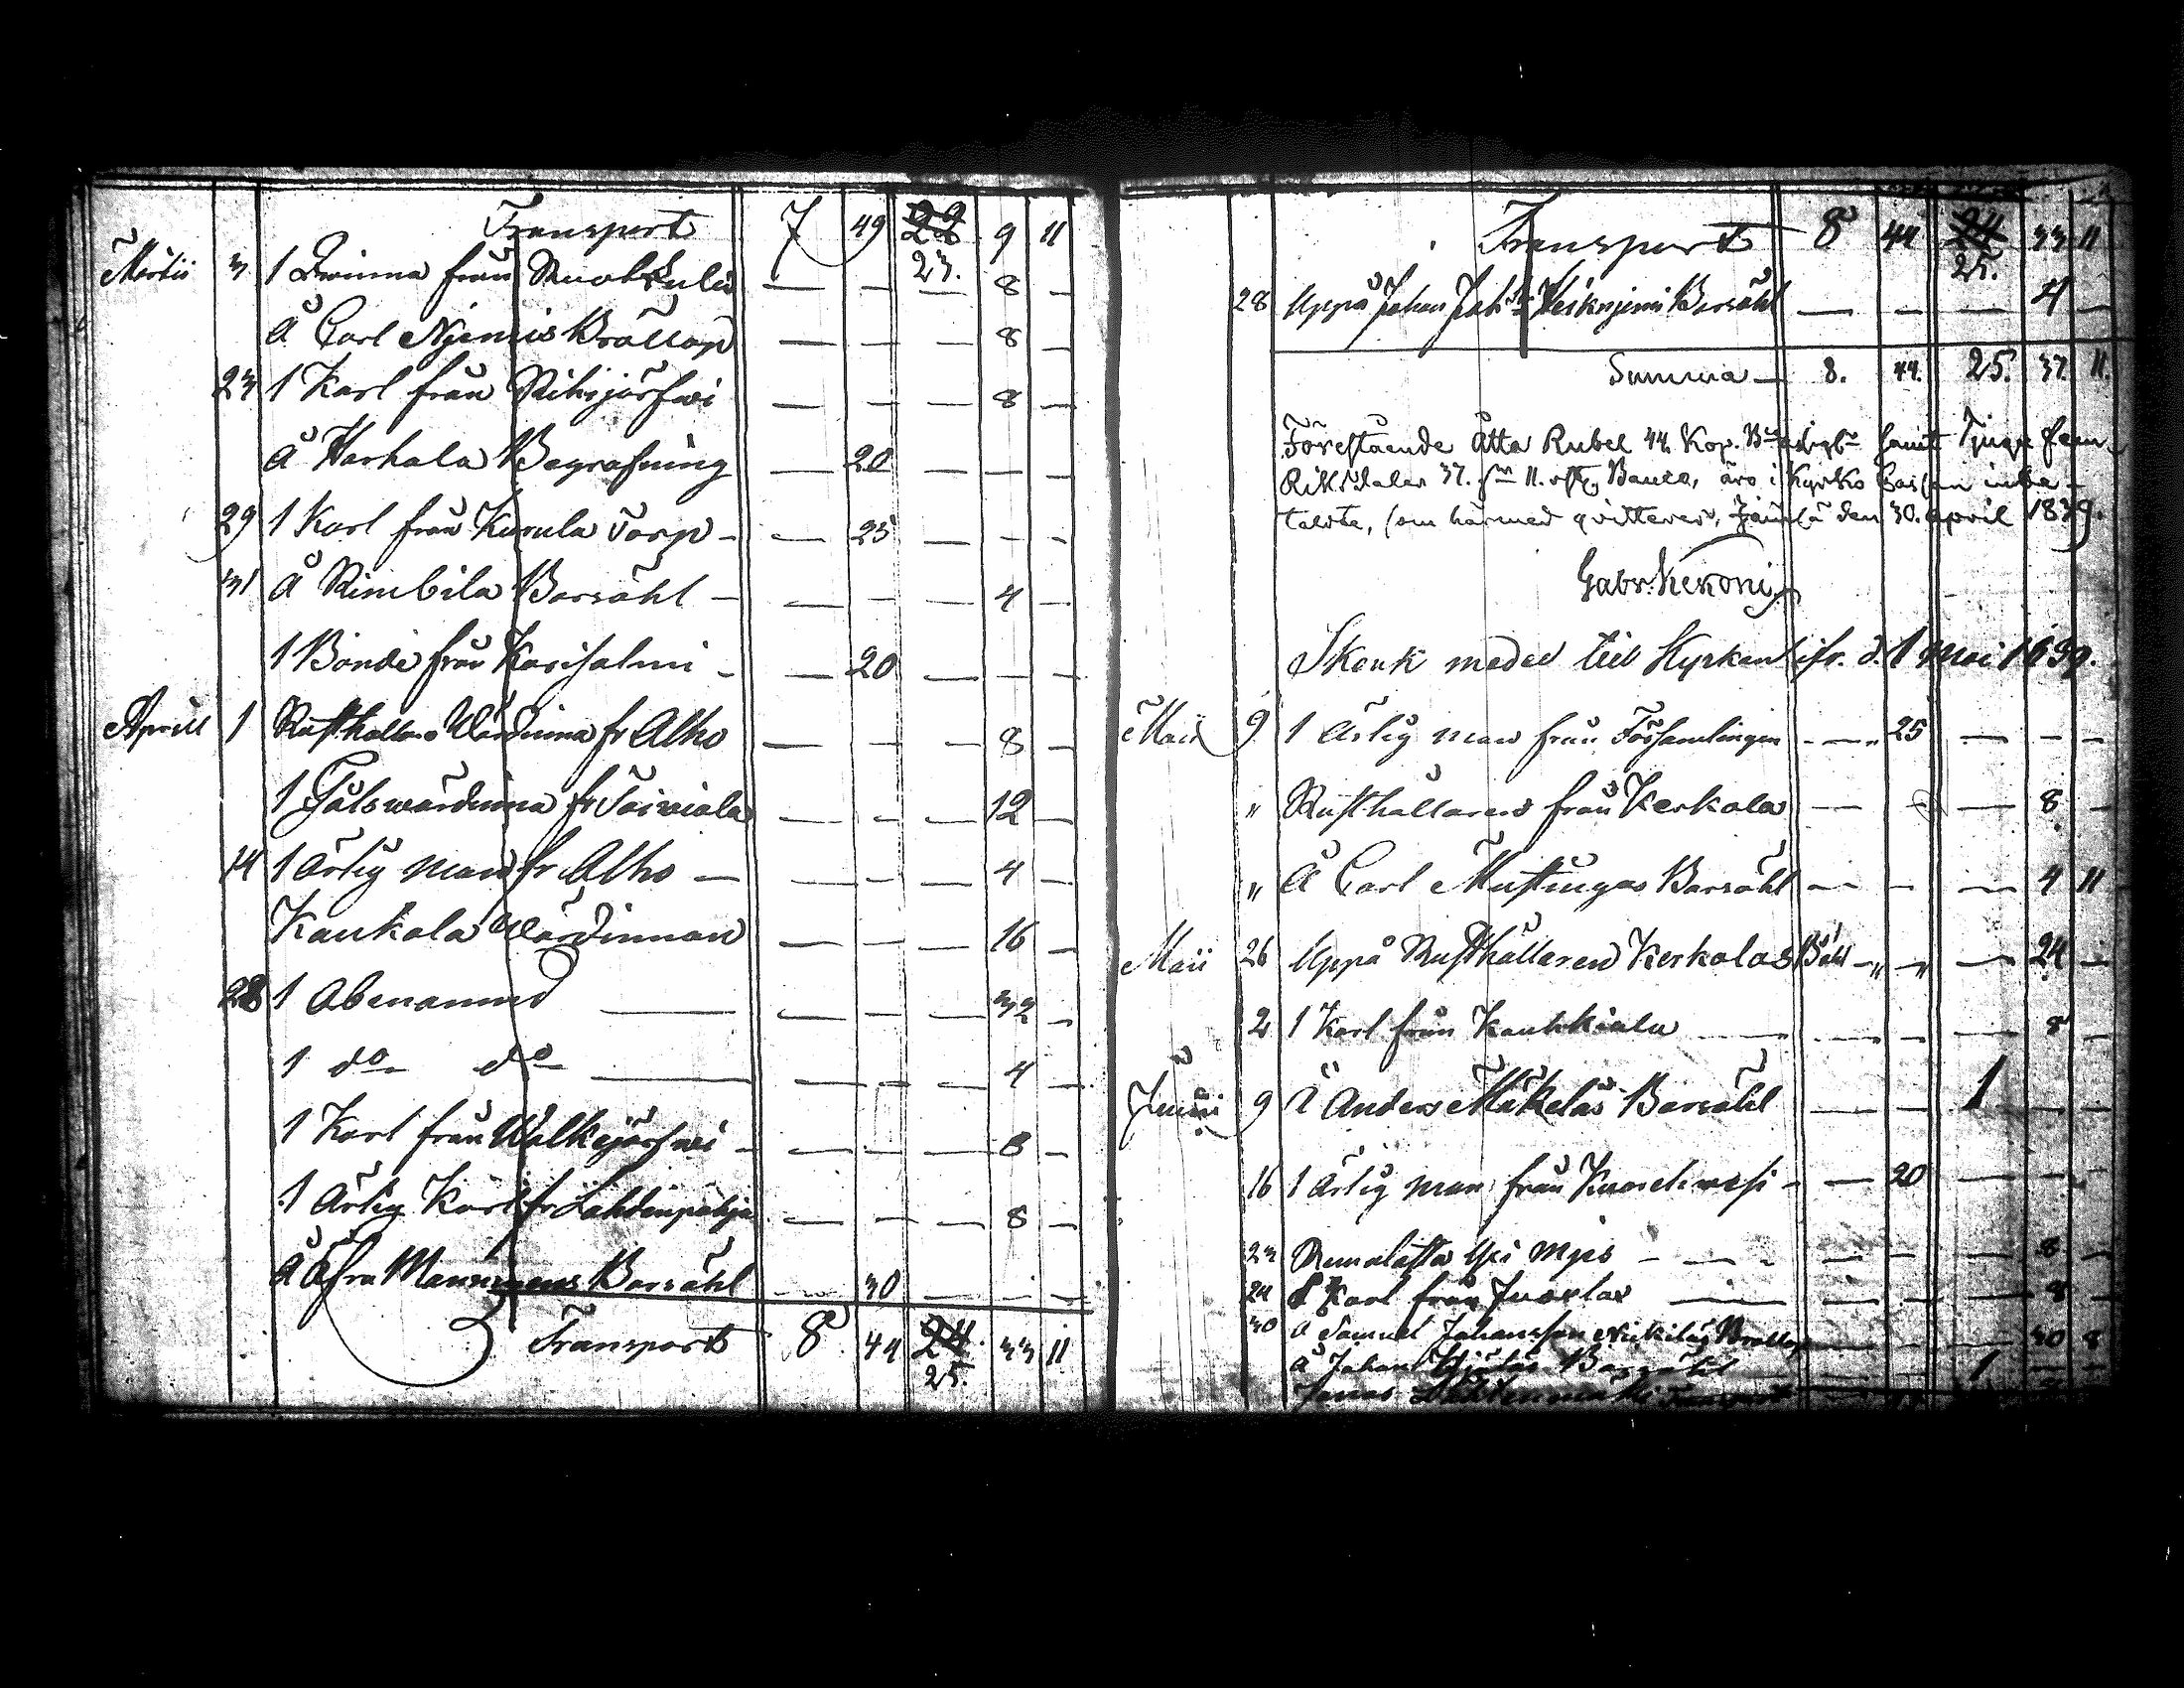 Transport 7 49 22 9 11
23.
Martii 3 1 Qvinna från — — — 8 —
Å Carl Njemis Bröllop — — — 8 —
23 1 Karl från Rihijärfwi — — — 8 —
Å Harhala Begrafning — 20 — — —
29 1 Karl från Kurula Torp — — 25 — — —
31 Å Rimbila Barsöhl — — — — 4 —
1 Bonde från Karisalmi — — 20 — — —
Aprill 1 Rusthollars Wärdinna fr Alho — — — 8 —
1 wärdinna fr Toiviala — — — 12 —
14 1 Ärlig man fr Alho — — — — 4 —
Kaukola Wärdinnan — — — 16 —
28 1 Obenämnd — — — — 32 —
1 do do — — — — 4 —
1 Karl från Walkejärfwi — — — — 8 —
1 Ärlig Karl fr Lahdenpohja — — — 8 —
Å Efra Manninens Barsöhl — 30 — — —
Transport 8 44 24 33 11
25.
Transport 8 44 24 33 11
25.
28 Uppå Johan Barsöhl — — — 4 —
Summa — 8. 44. 25. 37. 11.
Förestående Åtta Rubel 44 Kop. samt Tjugu fem
Riksdaler 37. 11. Banco, äro i Kyrko Cassan inbe-
talda, som härmed qvitteras, den 30. April 1839.
Gabr. Kekoni
Skänk medel till Kyrkan ifr. d. 1 Maii 1839.
Maii 9 1 Ärlig man från Församlingen — 25 — — —
" Rusthållaren från Kerkola — — — 8 —
" Å Carl Barsöhl — — — 4 11
Maii 26 Uppå Rusthållaren Kerkolas — " — " — 24 —
2 1 Karl från — — — 8 —
Junii 9 Å Anders Mäkeläs Barsöhl — — 1 — —
16 1 Ärlig man från Kuorehwesi — — 20 — — —
23 mjes — — — — 8 —
24 1 Karl från — — — — 8 —
30 Å Samuel Johansson Bröllop — — — 30 8
Å Johan Barsöhl — — 1 — —